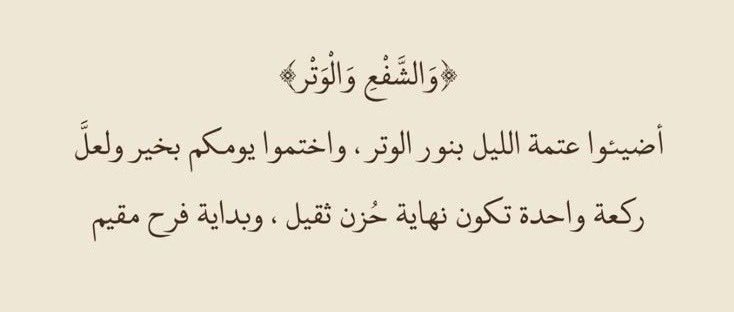 ﴿وَالشَّفْعِ وَالْوَتْرِ﴾
أضيئوا عتمة الليل بنور الوتر ، واختموا يومكم بخير ولعلَّ
ركعة واحدة تكون نهاية حُزن ثقيل ، وبداية فرح مقيم